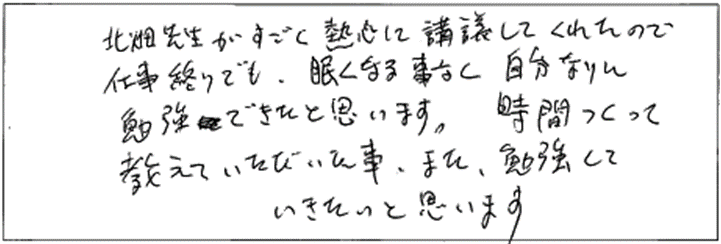 北畑先生がすごく熱心に講議してくれたので
仕事終りでも、眠くなる事なく自分なりに
勉強できたと思います。時間つくって
教えていただいた事、また、勉強して
いきたいと思います